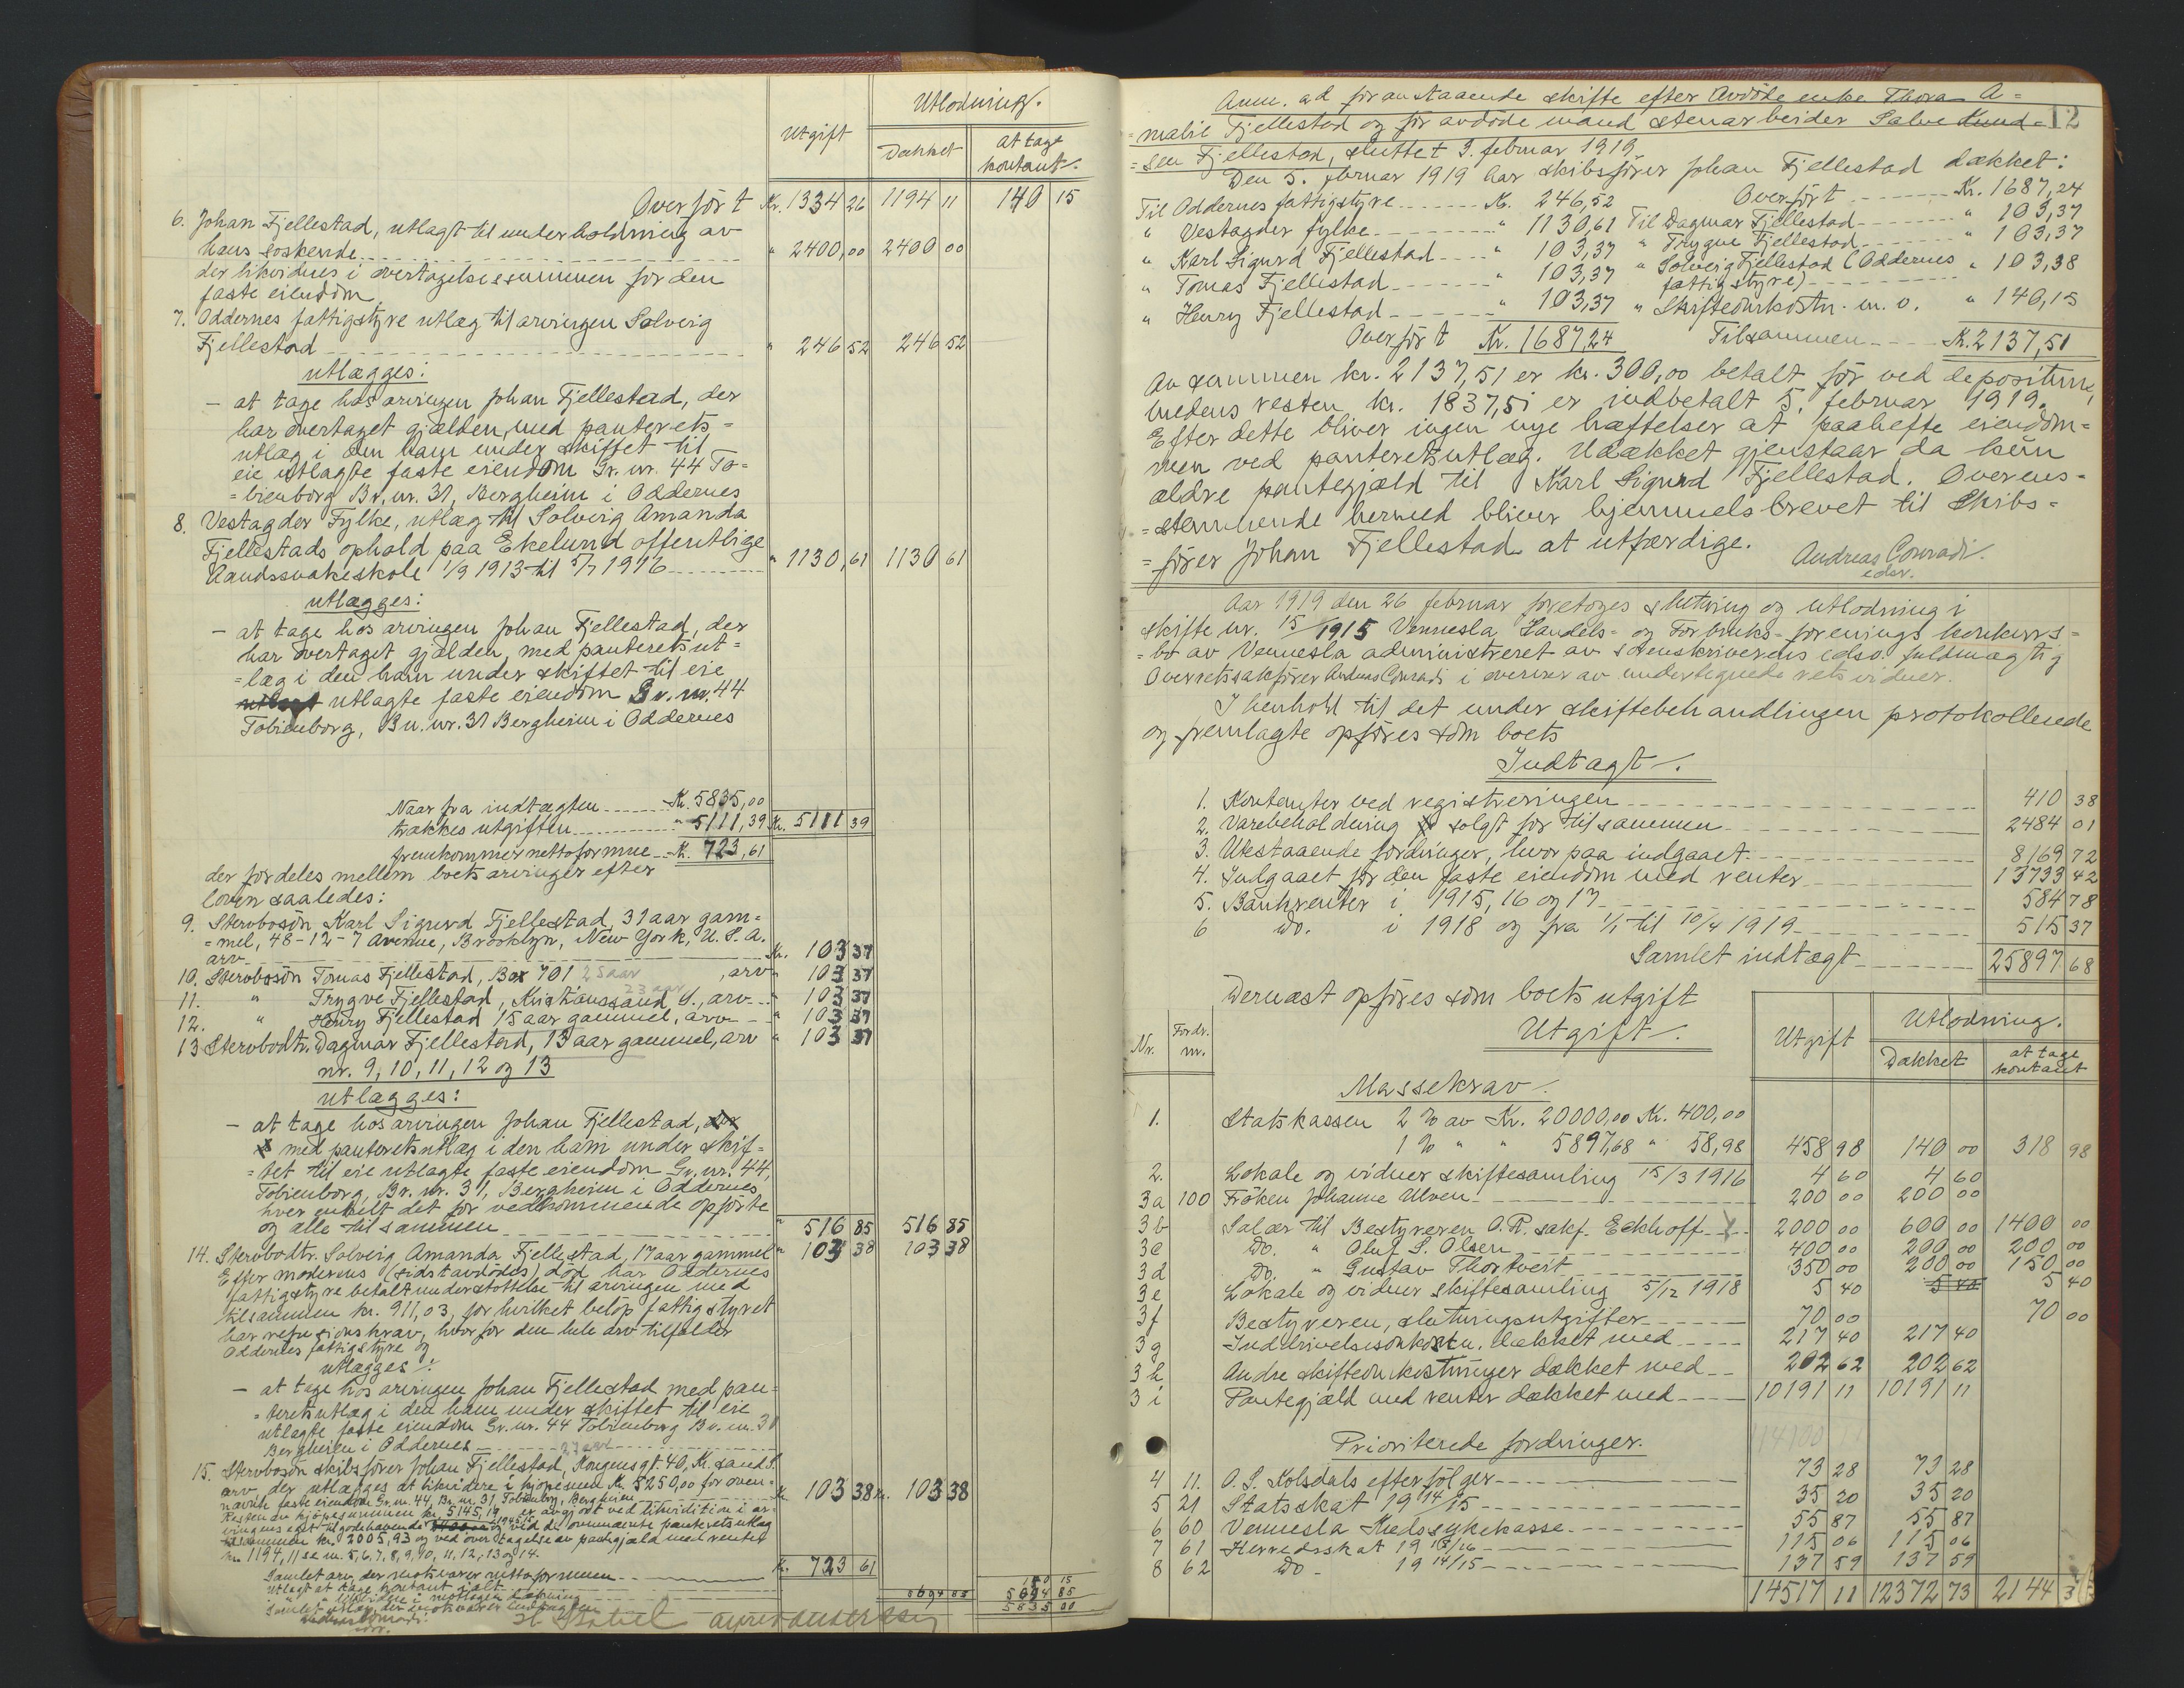 Utgift
Utlodning.
Dækket
at tage
kontant.
Overført Kr. 1334 26 1194 11 140 15
6. Johan Fjellestad, utlagt til underholdning av
hans søskende " 2400,00 2400 00
der likvideres i overtagelsessummen for den
faste eiendom
7. Oddernes fattigstyre utlæg til arvingen Solveig
Fjellestad " 246 52 246 52
utlægges:
- at tage hos arvingen Johan Fjellestad, der
har overtaget gjælden, med panterets=
utlæg i den ham under skiftet til
eie utlagte faste eiendom Gr. nr. 44 To=
=bienborg Br. nr. 31, Bergheim i Oddernes
8. Vestagder Fylke, utlæg til Solveig Amanda
Fjellestads ophold paa Ekelund offentlige
Aandssvakeskole 1/9 1913 til 5/7 1916 " 1130,61 1130 61
utlægges:
- at tage hos arvingen Johan Fjellestad, der
har overtaget gjælden, med panteretsut=
=læg i den ham under skiftet til eie
utlagt utlagte faste eiendom Gr. nr. 44
Tobienborg, Br. nr. 31 Bergheim i Oddernes
Naar fra indtægten Kr. 5835,00
trækkes utgiften " 5111,39 Kr. 5111 39
fremkommer nettoformue Kr. 723,61
der fordeles mellem boets arvinger efter
loven saaledes:
9. Stervbosøn Karl Sigurd Fjellestad, 31 aar gam=
=mel, 48-12-7 Avenue, Brooklyn, New York, U.S.A.
arv Kr. 103 37
10. Stervbosøn Tomas Fjellestad, Box 701 25 aar, arv " 103 37
23 aar
11. " Trygve Fjellestad, Kristianssand S., arv " 103 37
12. " Henry Fjellestad 15 aar gammel, arv " 103 37
13 Stervbodtr. Dagmar Fjellestad, 13 aar gammel, arv " 103 37
nr. 9, 10, 11, 12 og 13
utlægges:
- at tage hos arvingen Johan Fjellestad,
med panteretsutlæg i den ham under skif=
=tet til eie utlagte faste eiendom Gr. nr. 44,
Tobienborg, Br. nr. 31, Bergheim i Oddernes
hver enkelt det for vedkommende opførte
og alle tilsammen " 516 85 516 85
14. Stervbodtr. Solveig Amanda Fjellestad, 17 aar gammel " 103 38 103 38
Efter moderens (sidstavdødes) død har Oddernes
fattigstyre betalt understøttelse til arvingen med
tilsammen kr. 911,03, for hvilket beløp fattigstyret
har refusionskrav, hvorfor den hele arv tilfalder
Oddernes fattigstyre og
utlægges:
- at tage hos arvingen Johan Fjellestad med pan=
=teretsutlæg i den ham under skiftet til eie
utlagte faste eiendom Gr. nr. 44 Tobienborg Br. nr. 31
Bergheim i Oddernes
27 aar
15. Stervbosøn skibsfører Johan Fjellestad, Kongensgt. 40, Kr.sand S.
arv, der utlægges at likvidere i kjøpesummen Kr. 5250,00 for oven=
nævnte faste eiendom Gr. nr. 44, Br. nr. 31 Tobienborg, Bergheim Kr. 103 38 Kr. 103 38
Resten av kjøpesummen kr. 5145,19 er avgjort ved likvidition i ar=
vingens eget tilgodehavende og ved de ovennævnte panteretsutlæg
tilsammen kr. 2005,93 og ved overtagelse av pantegjæld med renter
kr. 1194,11 se nr. 5, 6, 7, 8, 9, 10, 11, 12, 13 og 14.
Samlet arv, der motsvarer nettoformuen Kr. 723 61
Utlagt at tage kontant ialt 140 15
" " likvidere i mottagen dækning 5694 85 5694 85
Samlet utlæg der motsvarer indtægten 5835 00
Andreas Conradi
edsv.
12
Anm. ad foranstaaende skifte efter avdøde enke Thora A=
=malie Fjellestad og før avdøde mand stenarbeider Salve Knud=
=sen Fjellestad, sluttet 3. februar 1919.
Den 5. februar 1919 har skibsfører Johan Fjellestad dækket:
Til Oddernes fattigstyre Kr. 246,52 Overført Kr. 1687,24
" Vestagder fylke " 1130,61 Til Dagmar Fjellestad " 103,37
" Karl Sigurd Fjellestad " 103,37 " Trygve Fjellestad " 103,37
" Tomas Fjellestad " 103,37 " Solveig Fjellestad (Oddernes " 103,38
fattigstyre)
" Henry Fjellestad " 103,37 " Skifteomkostn. m. v. " 140,15
Overført Kr. 1687,24 Tilsammen Kr. 2137,51
Av summen kr. 2137,51 er kr. 300,00 betalt før ved depositum,
medens resten kr. 1837,51 er indbetalt 5. februar 1919.
Efter dette bliver ingen nye hæftelser at paahefte eiendom=
men ved panteretsutlæg. Udækket gjenstaar da kun
ældre pantegjæld til Karl Sigurd Fjellestad. Overens=
=stemmende hermed bliver hjemmelsbrevet til Skibs=
=fører Johan Fjellestad at utfærdige.
Andreas Conradi
edsv.
Aar 1919 den 26 februar foretoges slutning og utlodning i
skifte nr. 15/1915 Vennesla Handels- og Forbruks-forenings konkurs=
=bo av Vennesla administreret av sorenskriverens edsv. fuldmægtig
Overretssakfører Andreas Conradi i overvær av undertegnede retsvidner.
I henhold til det under skiftebehandlingen protokollerede
og fremlagte opføres som boets
Indtægt.
1. Kontanter ved registreringen 410 38
2. Varebeholdning solgt for tilsammen 2484 01
3. Utestaaende fordringer, hvorpaa indgaaet 8169 72
4. Indgaaet for den faste eiendom med renter 13733 42
5. Bankrenter i 1915, 16 og 17 584 78
6 Do. i 1918 og fra 1/1 til 10/4 1919 515 37
Samlet indtægt 25897 68
Dernæst opføres som boets utgift
Utgift.
Nr.
Fordr. nr.
Utgift
Utlodning.
Dækket
at tage
kontant
Massekrav.
1. Statskassen 2 % av Kr. 20000,00 Kr. 400,00
1 % " " 5897,68 " 58,98 458 98 140 00 318 98
2. Lokale og vidner skiftesamling 15/3 1916 4 60 4 60
3a 100 Frøken Johanne Ulven 200 00 200 00
3b Salær til Bestyreren O.R. sakf. Eckhoff 2000 00 600 00 1400 00
3c Do. " Oluf S. Olsen 400 00 200 00 200 00
3d Do. " Gustav Thortveit 350 00 200 00 150 00
3e Lokale og vidner skiftesamling 5/12 1918 5 40 5 40 5 40
3f Bestyreren, slutningsutgifter 70 00 70 00
3g Inddrivelsesomkostn. dækket med 217 40 217 40
3h Andre skifteomkostninger dækket med 202 62 202 62
3i Pantegjæld med renter dækket med 10191 11 10191 11
Prioriterede fordringer.
4 11. O. S. Kolsdals efterfølger 73 28 73 28
5 21 Statsskat 19 14/15 35 20 35 20
6 60 Vennesla Kredssykekasse 55 87 55 87
7 61 Herredsskat 19 15/16 115 06 115 06
8 62 Do 19 14/15 137 59 137 59
14517 11 12372 73 2144 3